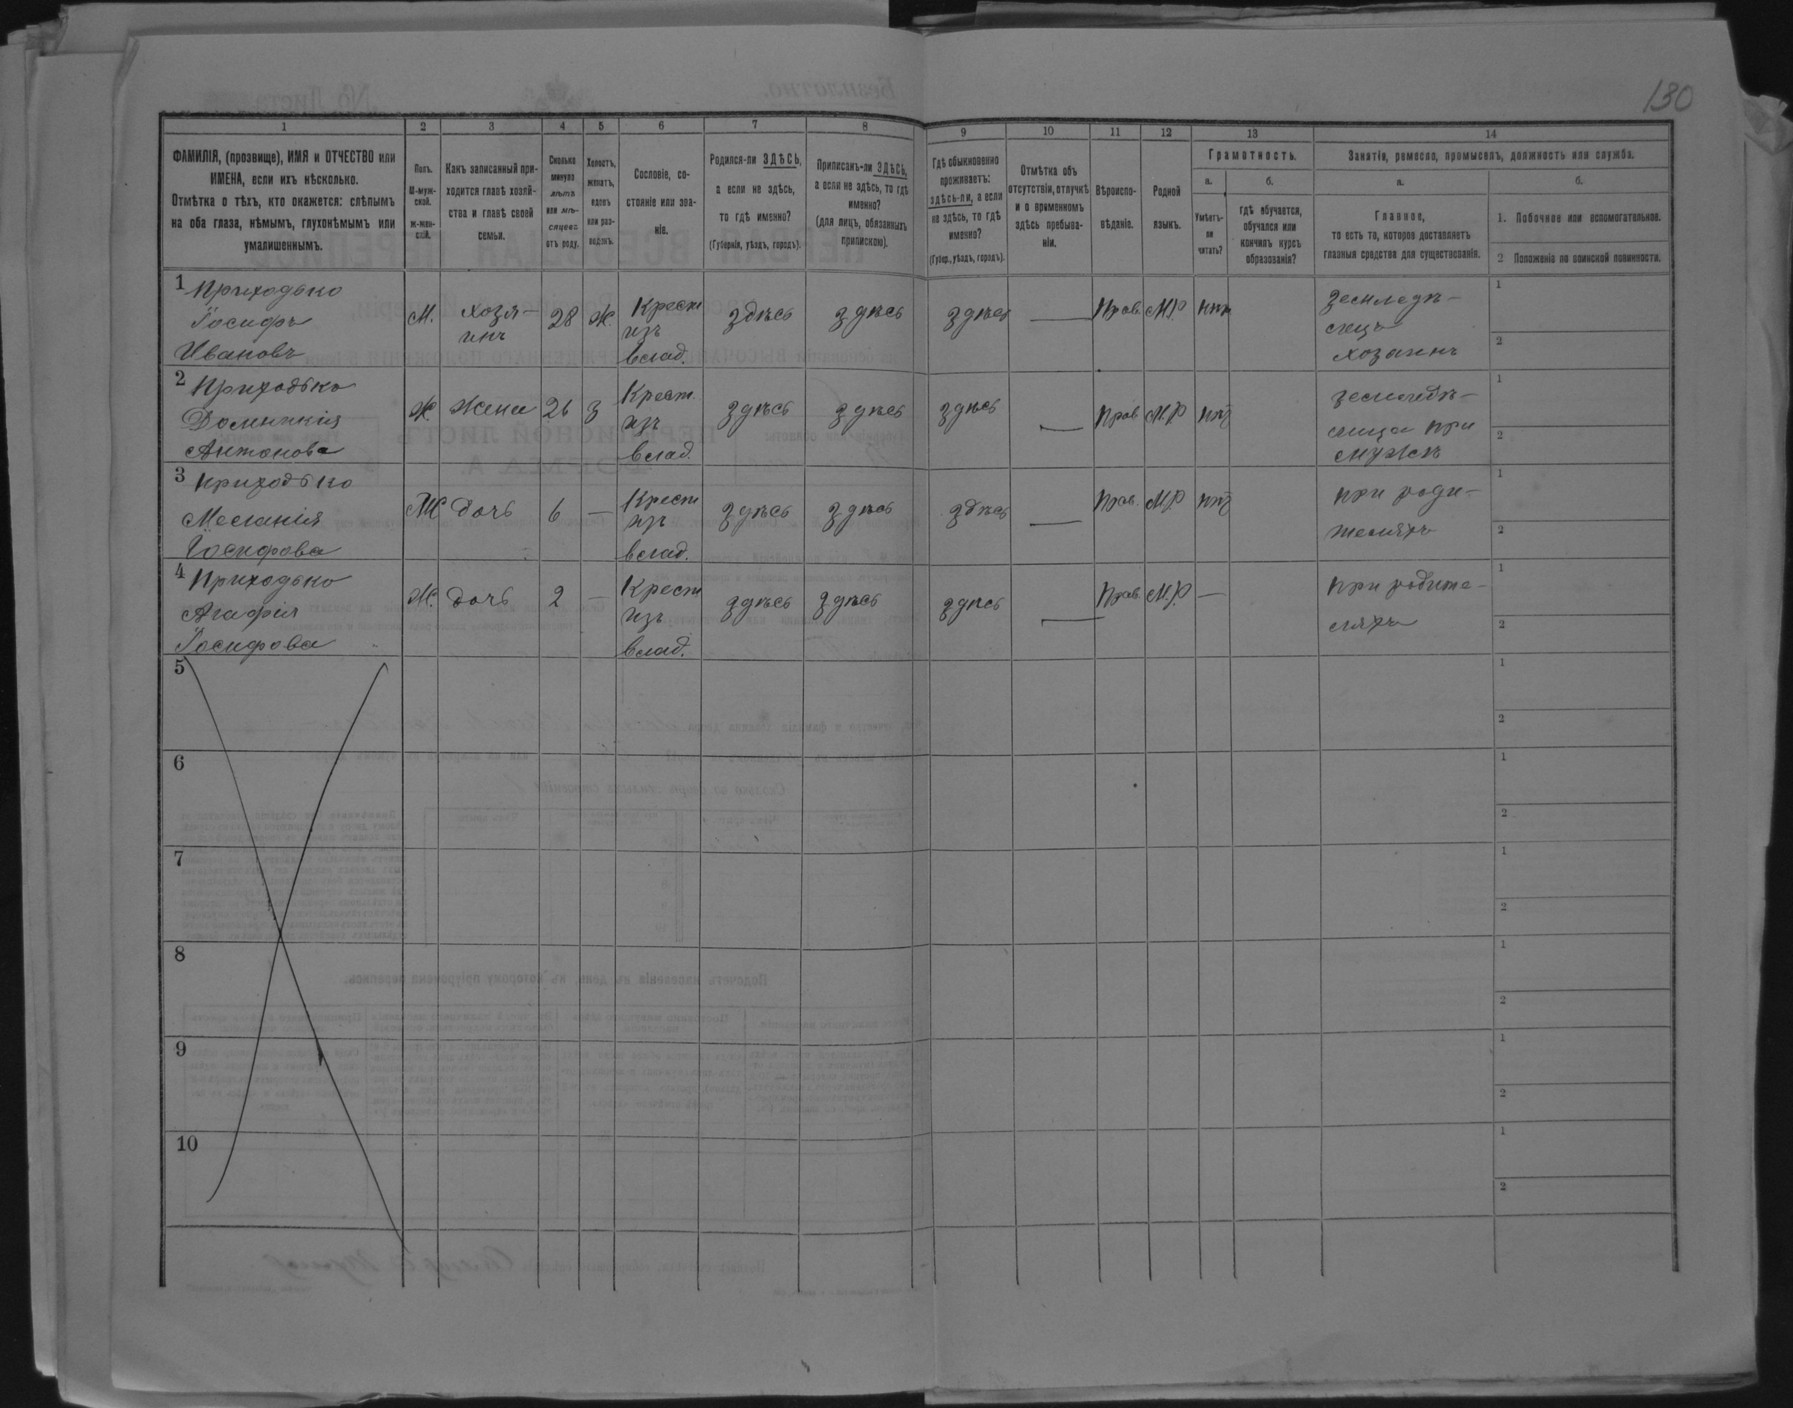 130
1 2 3 4 5 6 7 8 9 10 11 12 13 14
ФАМИЛІЯ, (прозвище), ИМЯ и ОТЧЕСТВО или
ИМЕНА, если ихъ нѣсколько.
Отмѣтка о тѣхъ, кто окажется: слѣпымъ
на оба глаза, нѣмымъ, глухонѣмымъ или
умалишеннымъ.
Полъ.
М-муж-
ской.
ж-жен-
скій.
Какъ записанный при-
ходится главѣ хозяй-
ства и главѣ своей
семьи.
Сколько
минуло
лѣтъ
или мѣ-
сяцевъ
отъ роду.
Холостъ,
женатъ,
вдовъ
или раз-
веденъ.
Сословіе, со-
стояніе или зва-
ніе.
Родился-ли ЗДѢСЬ,
а если не здѣсь,
то гдѣ именно?
(Губернія, уѣздъ, городъ).
Приписанъ-ли ЗДѢСЬ,
а если не здѣсь, то гдѣ
именно?
(для лицъ, обязанныхъ
припискою).
Гдѣ обыкновенно
проживаетъ:
здѣсь-ли, а если
не здѣсь, то гдѣ
именно?
(Губер., уѣздъ, городъ).
Отмѣтка объ
отсутствіи, отлучкѣ
и о временномъ
здѣсь пребыва-
ніи.
Вѣроиспо-
вѣданіе.
Родной
языкъ.
Грамотность.
а.
Умѣетъ-
ли
читать?
б.
гдѣ обучается,
обучался или
кончилъ курсъ
образованія?
Занятіе, ремесло, промыселъ, должность или служба.
а.
Главное,
то есть то, которое доставляетъ
главныя средства для существованія.
б.
1. Побочное или вспомогательное.
2 Положеніе по воинской повинности.
1 Приходько
Іосифъ
Ивановъ
М.
хозя-
инъ
28
Ж.
Крест
изъ
влад.
здѣсь
здѣсь
здѣсь
Прав.
М.Р.
земледѣ-
лецъ
хозяинъ
1
2
2 Приходько
Домникія
Антонова
Ж
жена
26
З
Крест.
изъ
влад.
здѣсь
здѣсь
здѣсь
Прав.
М.Р
нѣт
земледѣ-
лица при
мужѣ
1
2
3 Приходько
Меланія
Іосифова
Ж
дочь
6
—
Крест
изъ
влад.
здѣсь
здѣсь
здѣсь
Прав.
М.Р
нѣт
при роди-
теляхъ
1
2
4 Приходько
Агафія
Іосифова
Ж.
дочь
2
—
Крест
изъ
влад.
здѣсь
здѣсь
здѣсь
Прав.
М.Р.
—
при родите-
ляхъ
1
2
5
1
2
6
1
2
7
1
2
8
1
2
9
1
2
10
1
2